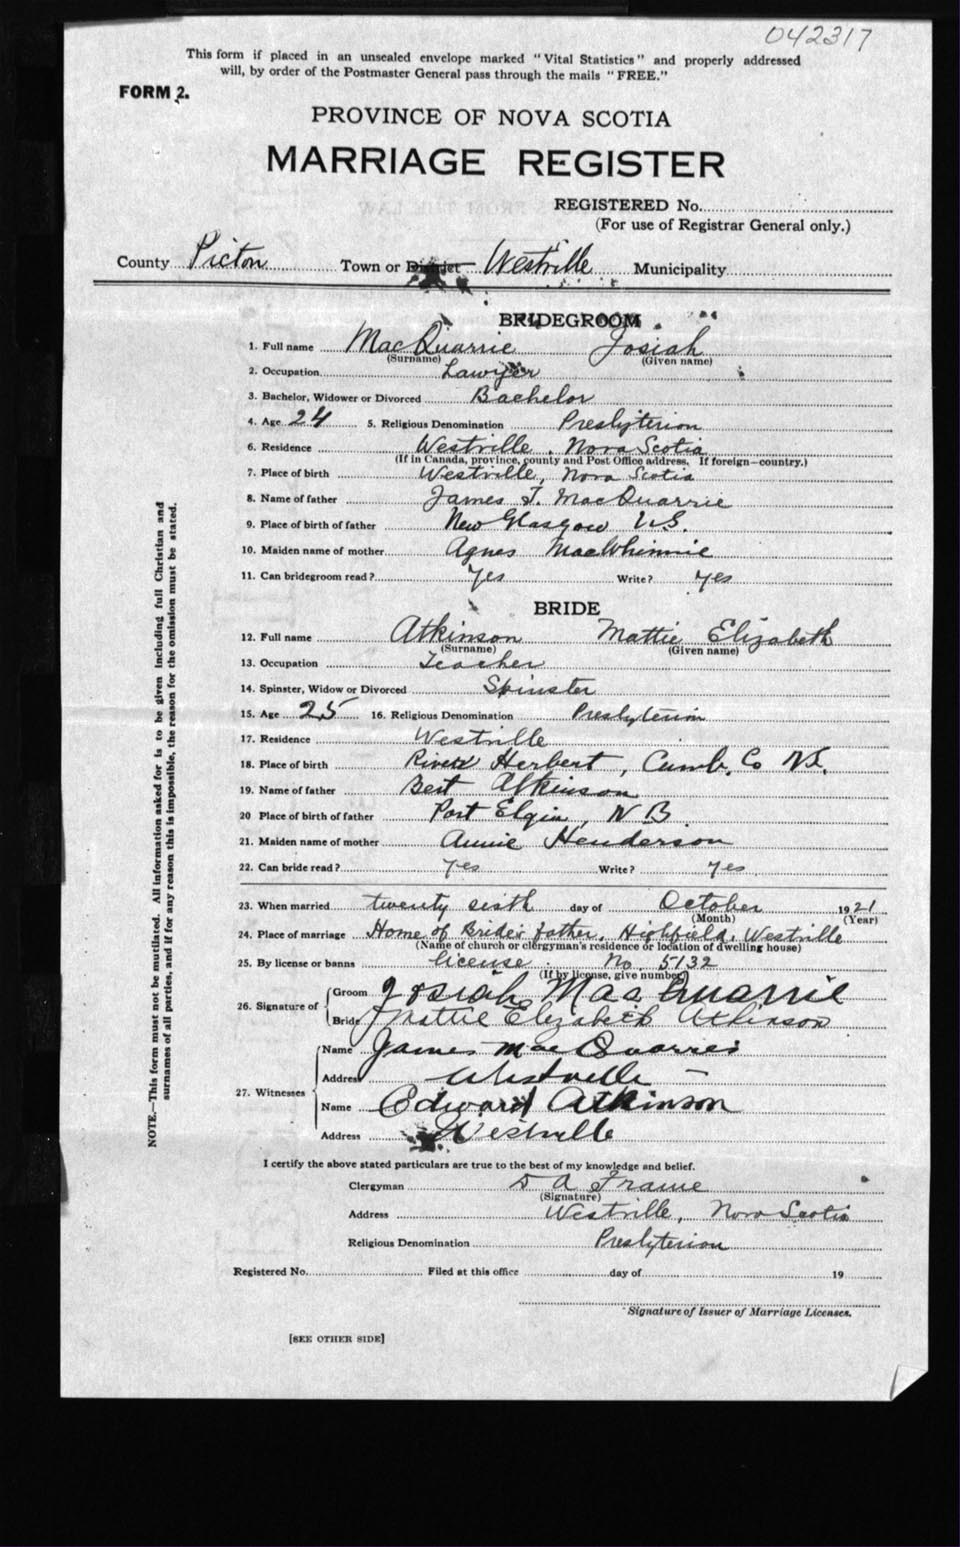 042317
This form if placed in an unsealed envelope marked "Vital Statistics" and properly addressed
will, by order of the Postmaster General pass through the mails "FREE."
FORM 2.
PROVINCE OF NOVA SCOTIA
MARRIAGE REGISTER
REGISTERED No.
(For use of Registrar General only.)
County Picton Town or District Westville Municipality
BRIDEGROOM
1. Full name MacQuarrie Josiah
(Surname) (Given name)
2. Occupation Lawyer
3. Bachelor, Widower or Divorced Bachelor
4. Age 24 5. Religious Denomination Presbyterion
6. Residence Westville, Nova Scotia
(If in Canada, province, county and Post Office address. If foreign—country.)
7. Place of birth Westville, Nova Scotia
8. Name of father James T. MacQuarrie
9. Place of birth of father New Glasgow N.S.
10. Maiden name of mother Agnes MacWhinnie
11. Can bridegroom read? Yes Write? Yes
BRIDE
12. Full name Atkinson Mattie Elizabeth
(Surname) (Given name)
13. Occupation Teacher
14. Spinster, Widow or Divorced Spinster
15. Age 25 16. Religious Denomination Presbyterion
17. Residence Westville
18. Place of birth River Herbert, Cumb. Co N.S.
19. Name of father Bert Atkinson
20 Place of birth of father Port Elgin, N B
21. Maiden name of mother Annie Henderson
22. Can bride read? Yes Write? Yes
23. When married twenty sixth day of October 1921
(Month) (Year)
24. Place of marriage Home of Brides father, Highfield, Westville
(Name of church or clergyman's residence or location of dwelling house)
25. By license or banns license No. 5132
(If by license, give number)
26. Signature of Groom Josiah MacQuarrie
Bride Mattie Elizabeth Atkinson
27. Witnesses
Name James MacQuarrie
Address Westville
Name Edward Atkinson
Address Westville
I certify the above stated particulars are true to the best of my knowledge and belief.
Clergyman D A Frame
(Signature)
Address Westville, Nova Scotia
Religious Denomination Presbyterion
Registered No. Filed at this office day of 19
Signature of Issuer of Marriage Licenses.
[SEE OTHER SIDE]
NOTE.—This form must not be mutilated. All information asked for is to be given including full Christian and
surnames of all parties, and if for any reason this is impossible, the reason for the omission must be stated.